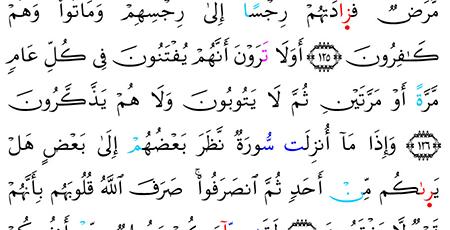 مَّرَضٌ فَزَادَتْهُمْ رِجْسًا إِلَىٰ رِجْسِهِمْ وَمَاتُوا۟ وَهُمْ
كَـٰفِرُونَ ١٢٥ أَوَلَا تَرَوْنَ أَنَّهُمْ يُفْتَنُونَ فِى كُلِّ عَامٍ
مَّرَّةً أَوْ مَرَّتَيْنِ ثُمَّ لَا يَتُوبُونَ وَلَا هُمْ يَذَّكَّرُونَ
١٢٦ وَإِذَا مَآ أُنزِلَت سُّورَةٌ نَّظَرَ بَعْضُهُمْ إِلَىٰ بَعْضٍ هَلْ
يَرىٰكُم مِّنْ أَحَدٍ ثُمَّ ٱنصَرَفُوا۟ۚ صَرَفَ ٱللَّهُ قُلُوبَهُم بِأَنَّهُمْ